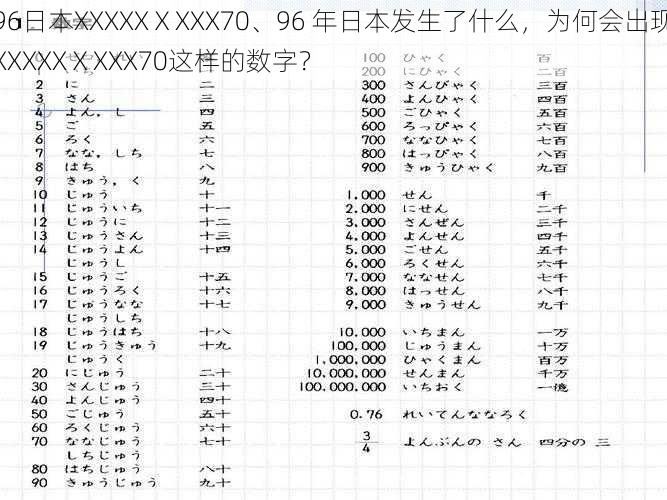 96日本XXXXX X XXX70、96 年日本发生了什么，为何会出现
XXXXX X XXX70这样的数字？
1 いち 一
2 に 二
3 さん 三
4 よん，し 四
5 ご 五
6 ろく 六
7 なな，しち 七
8 はち 八
9 きゅう，く 九
10 じゅう 十
11 じゅういち 十一
12 じゅうに 十二
13 じゅうさん 十三
14 じゅうよん 十四
じゅうし
15 じゅうご 十五
16 じゅうろく 十六
17 じゅうなな 十七
じゅうしち
18 じゅうはち 十八
19 じゅうきゅう 十九
じゅうく
20 にじゅう 二十
30 さんじゅう 三十
40 よんじゅう 四十
50 ごじゅう 五十
60 ろくじゅう 六十
70 ななじゅう 七十
しちじゅう
80 はちじゅう 八十
90 きゅうじゅう 九十
100 ひゃく 百
200 にひゃく 二百
300 さんびゃく 三百
400 よんひゃく 四百
500 ごひゃく 五百
600 ろっぴゃく 六百
700 ななひゃく 七百
800 はっぴゃく 八百
900 きゅうひゃく 九百
1,000 せん 千
2,000 にせん 二千
3,000 さんぜん 三千
4,000 よんせん 四千
5,000 ごせん 五千
6,000 ろくせん 六千
7,000 ななせん 七千
8,000 はっせん 八千
9,000 きゅうせん 九千
10,000 いちまん 一万
100,000 じゅうまん 十万
1,000,000 ひゃくまん 百万
10,000,000 せんまん 千万
100,000,000 いちおく 一億
0.76 れいてんななろく
3/4 よんぶんの さん 四分の 三